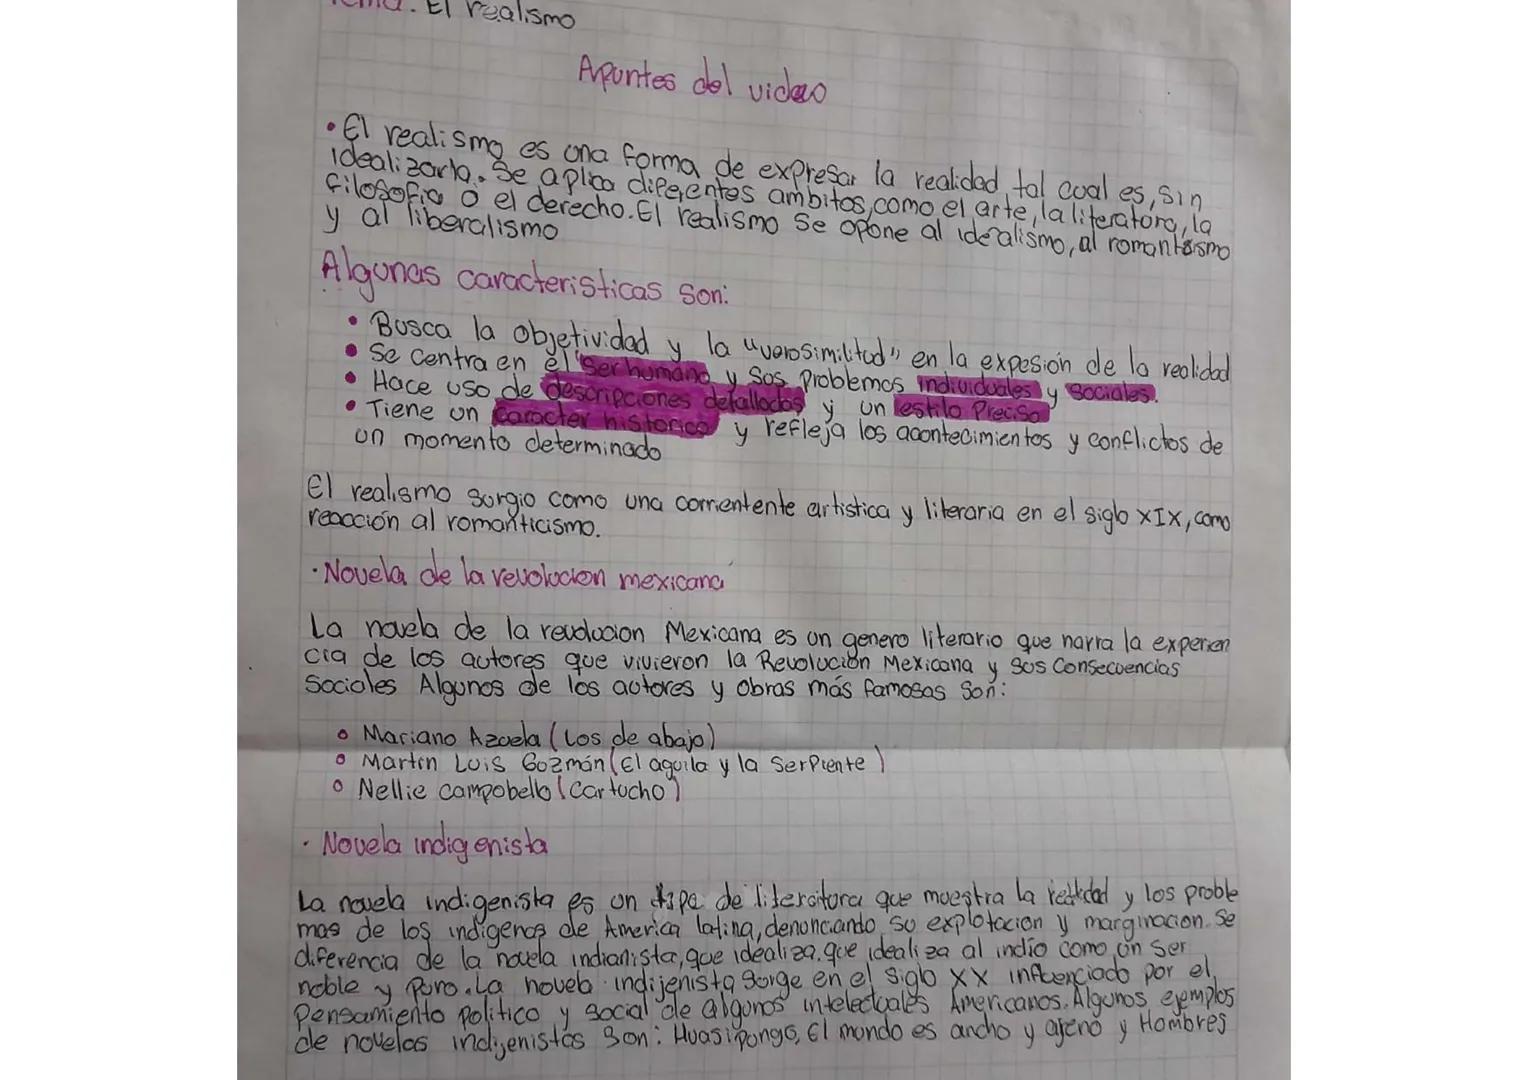 Tema: El realismo
Apuntes del video
• El realismo es una forma de expresar la realidad tal cual es, sin
idealizarla. Se aplica diferentes ambitos, como el arte, la literatura, la
filosofia o el derecho. El realismo se opone al idealismo, al romanticismo
y al liberalismo
Algunas caracteristicas son:
• Busca la objetividad y la "verosimilitud" en la exposión de la realidad
• Se centra en el "ser humano y sus problemas individuales y sociales.
• Hace uso de descripciones detalladas y un estilo Preciso
• Tiene un caracter historico y refleja los acontecimientos y conflictos de
un momento determinado
El realismo surgio como una corrientente artistica y literaria en el siglo XIX, como
reacción al romanticismo.
· Novela de la revolucion mexicana
La novela de la revolucion Mexicana es un genero literario que narra la experien
cia de los autores que vivieron la Revolución Mexicana y sus Consecuencias
Sociales Algunos de los autores y obras más famosas son:
• Mariano Azuela (Los de abajo)
• Martín Luis Guzmán (El aguila y la Serpiente)
• Nellie campobello (Cartucho)
· Novela indigenista
La novela indigenista es un tipo de literatura que muestra la realidad y los proble
mas de los indigenas de America latina, denunciando su explotacion y marginacion. Se
diferencia de la novela indianista, que idealiza. que idealiza al indio como un ser
noble y puro. La novela indijenista surge en el siglo XX influenciado por el
Pensamiento politico y social de algunos intelectuales Americanos. Algunos ejemplos
de novelas indijenistas son: Huasipongo, El mundo es ancho y ajeno y Hombres